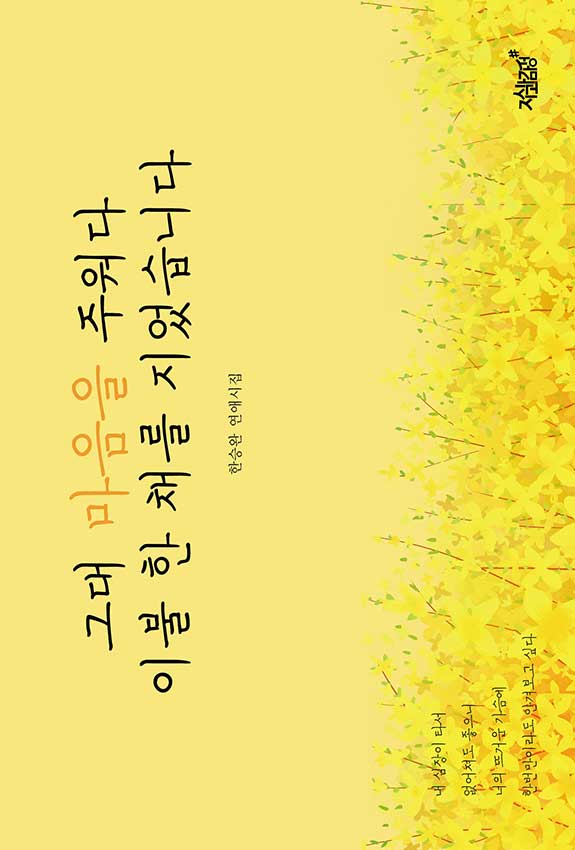 그대 마음을 주워다
이불 한 채를 지었습니다
한승완 연애시집
내 심장이 타서
없어져도 좋으니
너의 뜨거운 가슴에
한번만이라도 안겨보고 싶다
지식과감성#